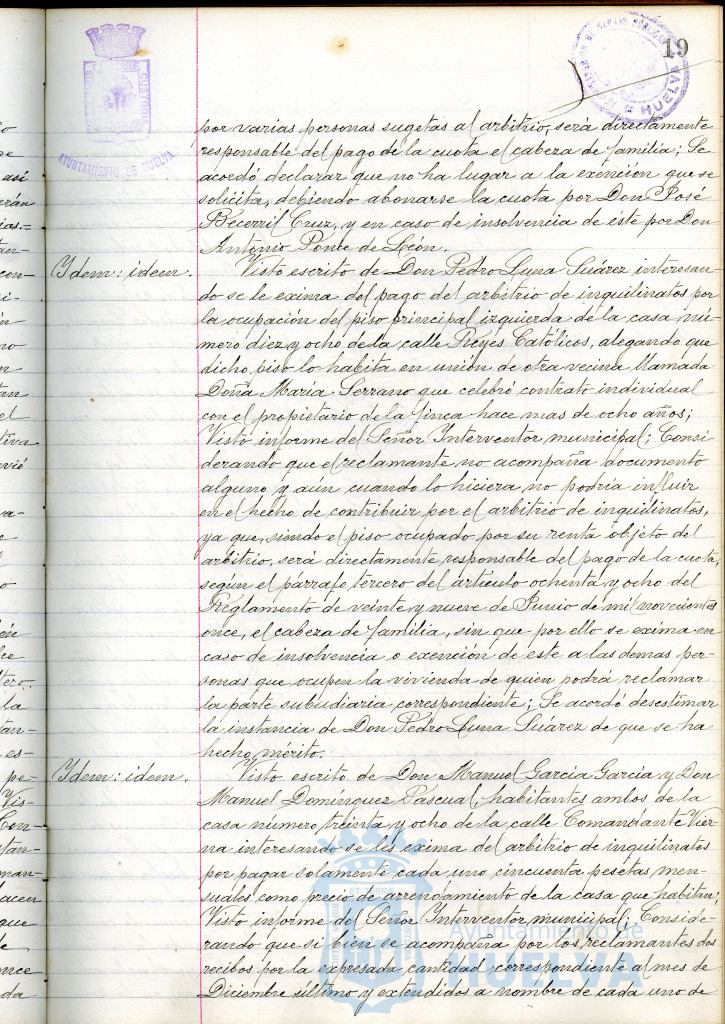 19
AYUNTAMIENTO DE HUELVA
HUELVA
por varias personas sugetas al arbitrio, será directamente
responsable del pago de la cuota el cabeza de familia; Se
acordó declarar que no ha lugar a la exención que se
solicita, debiendo abonarse la cuota por Don José
Becerril Cruz, y en caso de insolvencia de éste por Don
Antonio Ponte de León.
Idem: idem.
Visto escrito de Don Pedro Luna Suárez interesan-
do se le exima del pago del arbitrio de inquilinatos por
la ocupación del piso principal izquierda de la casa nú-
mero diez y ocho de la calle Reyes Católicos, alegando que
dicho piso lo habita en unión de otra vecina llamada
Doña María Serrano que celebró contrato individual
con el propietario de la finca hace mas de ocho años;
Visto informe del Señor Interventor municipal; Consi
derando que el reclamante no acompaña documento
alguno y aún cuando lo hiciera no podría influir
en el hecho de contribuir por el arbitrio de inquilinatos,
ya que, siendo el piso ocupado por su renta objeto del
arbitrio, será directamente responsable del pago de la cuota,
según el párrafo tercero del artículo ochenta y ocho del
Reglamento de veinte y nueve de Junio de mil novecientos
once, el cabeza de familia, sin que por ello se exima en
caso de insolvencia o exención de este a las demas per-
sonas que ocupen la vivienda de quien podrá reclamar
la parte subsudiaria correspondiente; Se acordó desestimar
la instancia de Don Pedro Luna Suárez de que se ha
hecho mérito.
Idem: idem.
Visto escrito de Don Manuel García García y Don
Manuel Domínguez Pascual, habitantes ambos de la
casa número treinta y ocho de la calle Comandante Vier-
na interesando se les exima del arbitrio de inquilinatos
por pagar solamente cada uno cincuenta pesetas men-
suales como precio de arrendamiento de la casa que habitan;
Visto informe del Señor Interventor municipal; Conside-
rando que si bien se acompaña por los reclamantes dos
recibos por la expresada cantidad correspondiente al mes de
Diciembre último y extendidos a nombre de cada uno de
Ayuntamiento de
HUELVA